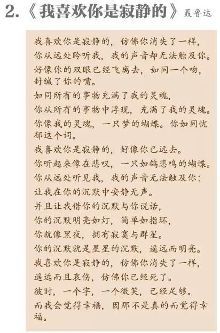 2.《我喜欢你是寂静的》聂鲁达
我喜欢你是寂静的，仿佛你消失了一样，
你从远处聆听我，我的声音却无法触及你。
好像你的双眼已经飞离去，如同一个吻，
封缄了你的嘴。
如同所有的事物充满了我的灵魂，
你从所有的事物中浮现，充满了我的灵魂。
你像我的灵魂，一只梦的蝴蝶。你如同忧
郁这个词。
我喜欢你是寂静的，好像你已远去。
你听起来像在悲叹，一只如鸽悲鸣的蝴蝶。
你从远处听见我，我的声音无法触及你：
让我在你的沉默中安静无声。
并且让我借你的沉默与你说话，
你的沉默明亮如灯，简单如指环，
你就像黑夜，拥有寂寞与群星。
你的沉默就是星星的沉默，遥远而明亮。
我喜欢你是寂静的，仿佛你消失了一样，
遥远而且哀伤，仿佛你已经死了。
彼时，一个字，一个微笑，已经足够。
而我会觉得幸福，因那不是真的而觉得幸
福。